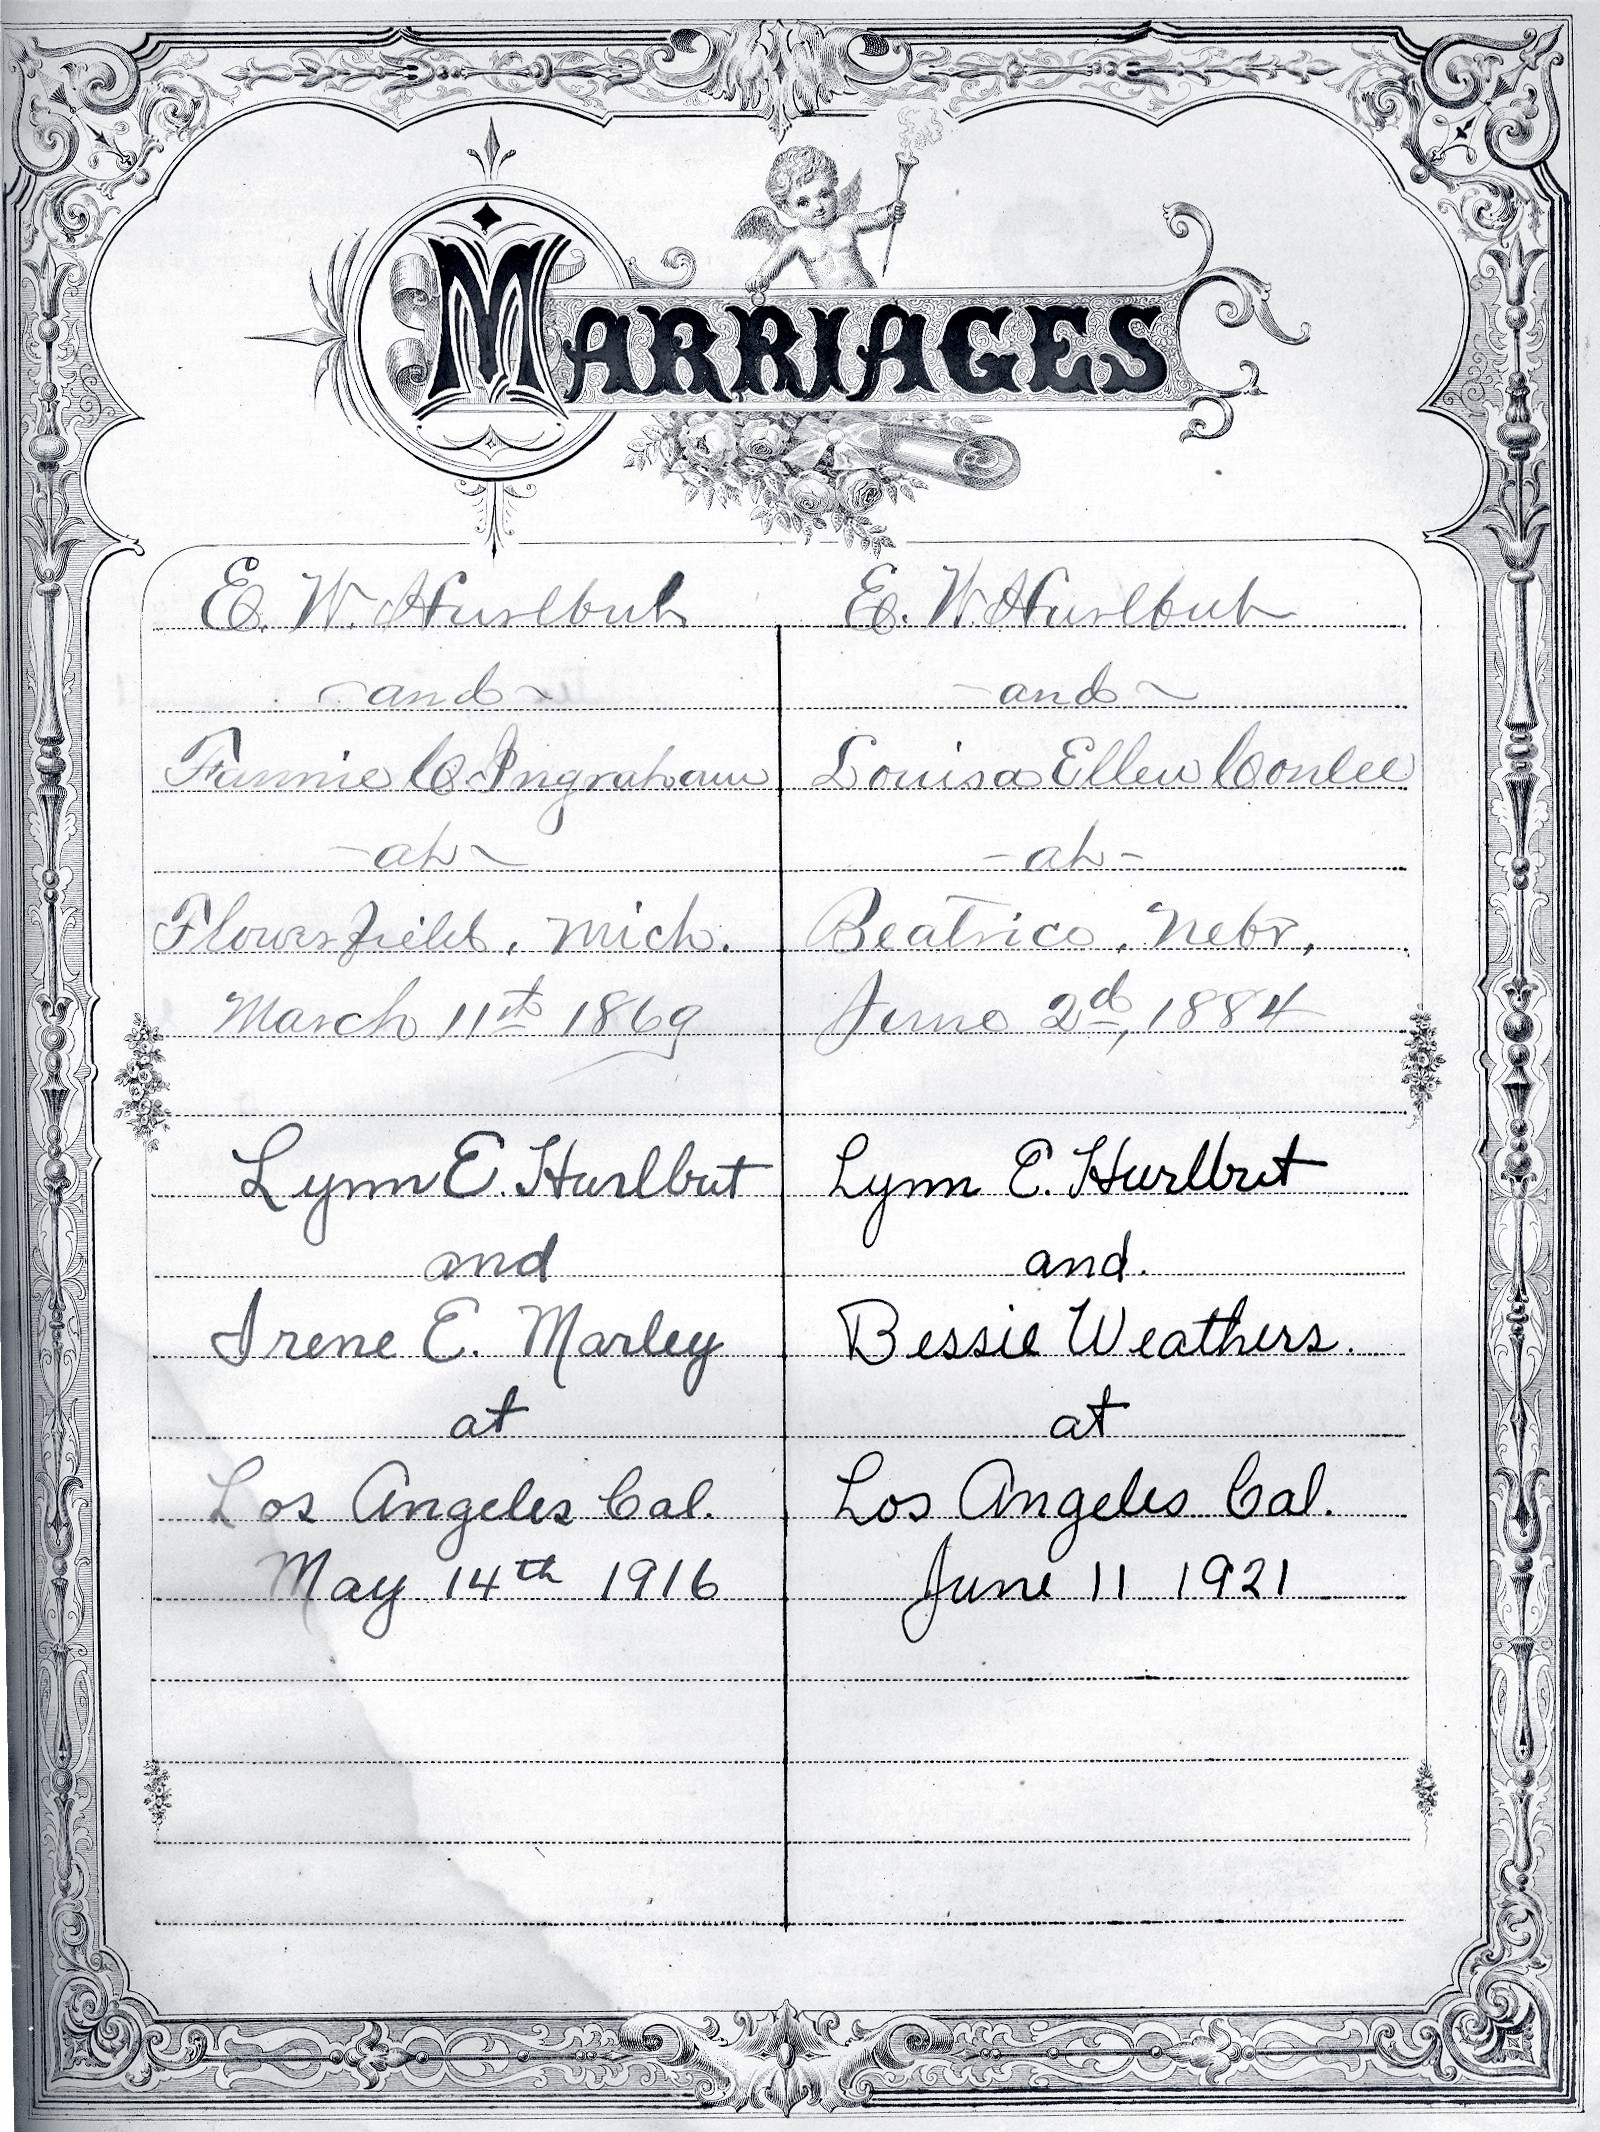 MARRIAGES
E. W. Hurlbut
and
Fannie C. Ingraham
at
Flowerfield, Mich.
March 11th 1869
E. W. Hurlbut
and
Louisa Ellen Conlee
at
Beatrice, Nebr,
June 2d, 1884
Lynn E. Hurlbut
and
Irene E. Marley
at
Los Angeles Cal.
May 14th 1916
Lynn E. Hurlbut
and.
Bessie Weathers.
at
Los Angeles Cal.
June 11 1921